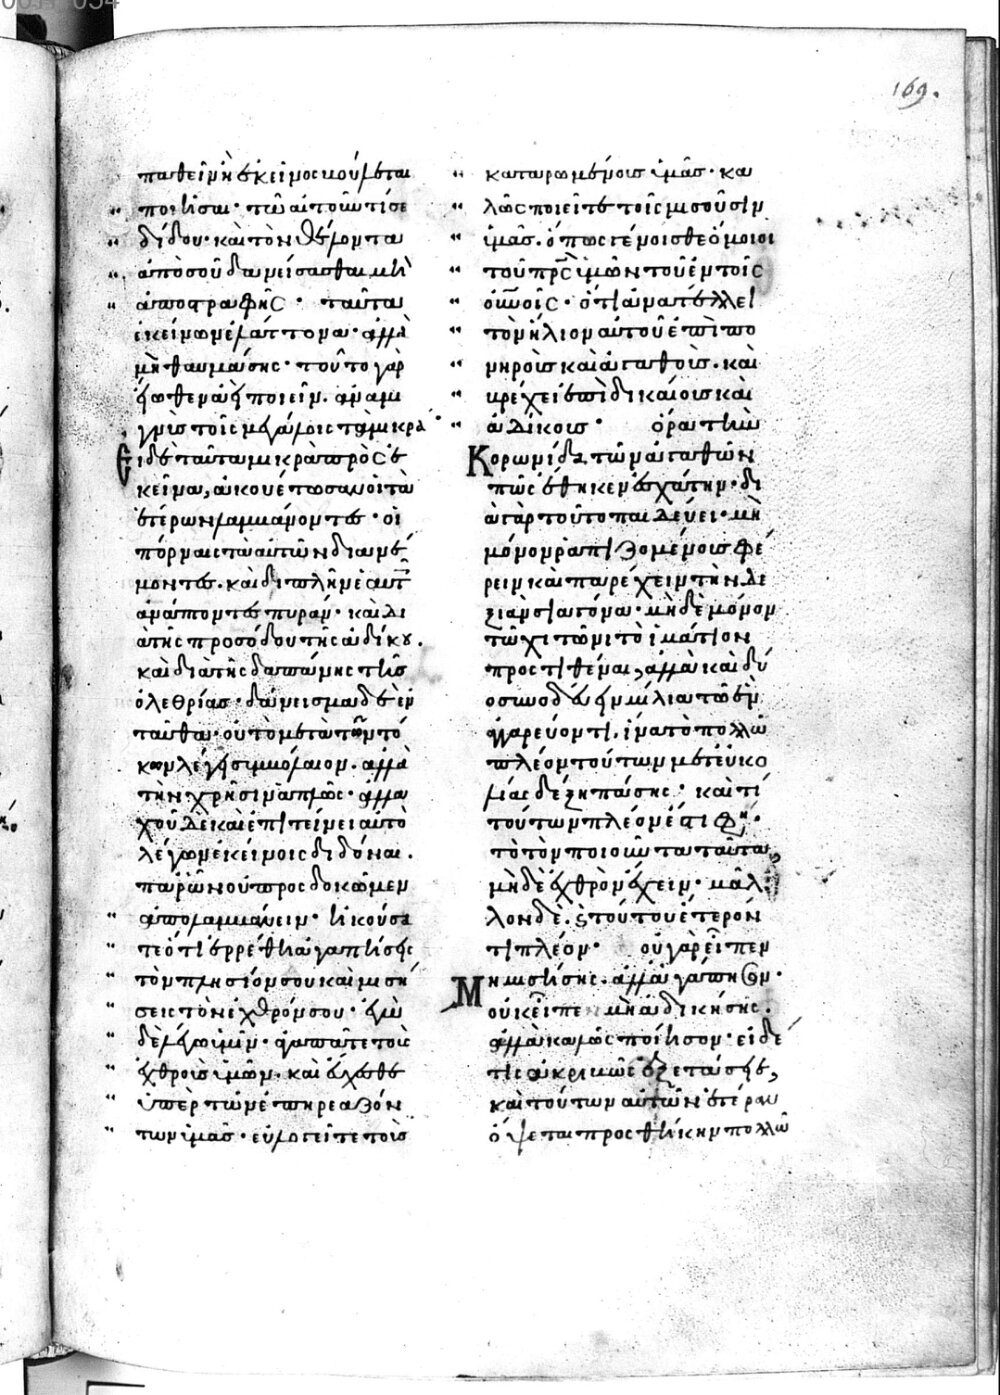 169.
παθεῖν ἢ ἐκεῖνος βούλεται
ποιῆσαι· τῶ αἰτοῦντί σε
δίδου· καὶ τὸν θέλοντα
ἀπὸ σοῦ δανείσασθαι μὴ
ἀποστραφῆς· ταῦτα
ἐκείνων ἐλάττονα· ἀλλὰ
μὴ θαυμάσης· τοῦτο γὰρ
ἔωθεν ἀεὶ ποιεῖν. ἀναμι
γνὺς τοῖς μεγάλοις τὰ μικρά·
Εἰ δὲ ταῦτα μικρὰ πρὸς ἐ
κεῖνα, ἀκουέτωσαν οἱ τὰ
ἑτέρων λαμβάνοντες· οἱ
πόρναις τὰ αὐτῶν διανέ
μοντες. καὶ διπλῆν ἑαυτοῖς
ἀνάπτοντες πυράν· καὶ δι
ὰ τῆς προσόδου τῆς ἀδίκου.
καὶ διὰ τῆς δαπάνης τῆς
ὀλεθρίας· δάνεισμα δὲ ἐν
ταῦθα· οὐ τὸ μετὰ τῶν τό
κων λέγει συμβόλαιον. ἀλλὰ
τὴν χρῆσιν ἁπλῶς· ἀλλα
χοῦ δὲ καὶ ἐπιτείνει αὐτὸ
λέγων ἐκείνοις διδόναι.
παρ ὧν οὐ προσδοκῶμεν
ἀπολαμβάνειν· ἠκούσα
τε ὅτι ἐρρέθη ἀγαπήσεις
τὸν πλησίον σου καὶ μισή
σεις τὸν ἐχθρόν σου· ἐγὼ
δὲ λέγω ὑμῖν· ἀγαπᾶτε τοὺς
ἐχθροὺς ὑμῶν. καὶ εὔχεσθε
ὑπὲρ τῶν ἐπηρεαζόν
των ὑμᾶς· εὐλογεῖτε τοὺς
καταρωμένους ὑμᾶς· κα
λῶς ποιεῖτε τοῖς μισοῦσιν
ὑμᾶς. ὅπως γένοισθε ὅμοιοι
τοῦ πρς ὑμῶν τοῦ ἐν τοῖς
οὐνοῖς· ὅτι ἀνατέλλει
τὸν ἥλιον αὐτοῦ ἐπὶ πο
νηροὺς καὶ ἀγαθοὺς. καὶ
βρέχει ἐπὶ δικαίους καὶ
ἀδίκους· ὅρα τὴν
Κορωνίδα τῶν ἀγαθῶν
πῶς ἔθηκεν ἐσχάτην· δι
ὰ γὰρ τοῦτο παιδεύει· μὴ
μόνον ῥαπιζομένους φέ
ρειν καὶ παρέχειν τὴν δε
ξιὰν σιαγόνα· μὴ δὲ μόνον
τῶ χιτῶνι τὸ ἱμάτιον
προστιθέναι, ἀλλὰ καὶ δύ
ο συνοδεύειν μίλια τῶ ἓν
ἀγγαρεύοντι, ἵνα τὸ πολλῶ
πλέον τούτων μετ εὐκο
λίας δέξη πάσης· καὶ τί
τούτων πλέον ἐστὶ φη·
τὸ τὸν ποιοῦντα ταῦτα,
μηδὲ ἐχθρὸν ἔχειν· μᾶλ
λον δὲ. ϛ τούτου ἕτερόν
τι πλέον· οὐ γὰρ εἶπεν
Μὴ μισήσης. ἀλλ ἀγάπησον·
οὐκ εἶπε μὴ ἀδικήσης.
ἀλλὰ καλῶς ποίησον· εἰ δέ
τις ἀκριβῶς ἐξετάσειε,
καὶ τούτων αὐτῶν ἑτέραν
ὄψεται προσθήκην πολλῶ